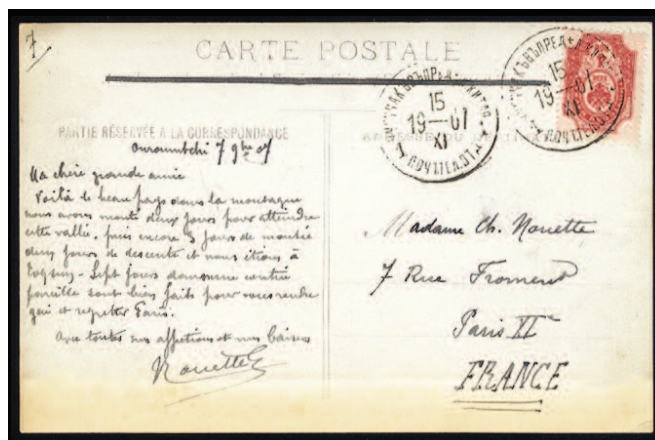 7
CARTE POSTALE
PARTIE RÉSERVÉE A LA CORRESPONDANCE
Ouroumtchi 7 9bre 07
Ma chère grande amie
Voilà le beau pays dans la montagne
nous avons monté deux jours pour atteindre
cette vallée, puis encore 3 jours de montée
deux jours de descente et nous étions à
Sept jours
pareille sont bien faits pour vous rendre
gai et regretter Paris.
Avec toutes nos affections et nos baisers
Nouette
15
19—07
XI
15
19—07
XI
Madame Ch. Nouette
7 Rue Froment
Paris XIe
FRANCE